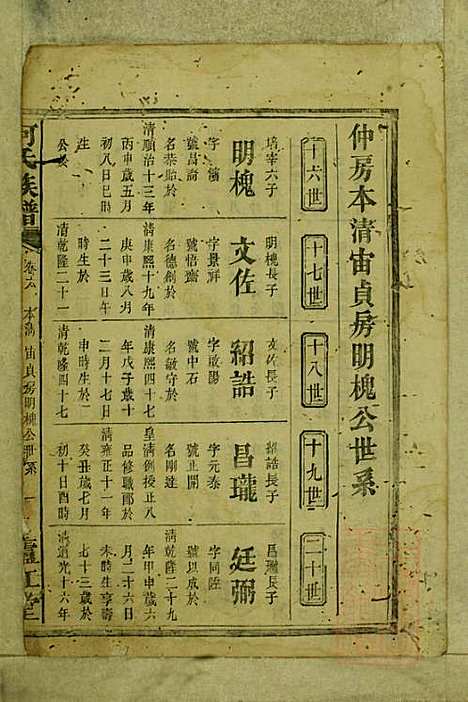 仲房本清宙貞房明槐公世系
十六世
十七世
十八世
十九世
二十世
宰六子
明槐
字
號嵩齋
名恭貽於
清順治十三年
丙申歲五月
初八日巳時
生
公於
明槐長子
文佐
字景輝
號悟齋
名德創於
清康熙十九年
庚申歲八月
二十三日午
時生於
清乾隆二十一
文佐長子
紹誥
字啟陽
號中石
名敏守於
清康熙四十七
年戊子歲十
二月十七日
申時生於
清乾隆四十七
紹誥長子
昌瓏
字元泰
號止開
名剛達
皇清例授正八
品修職郎於
清雍正十一年
癸丑歲七月
初十日酉時
昌瓏長子
廷弼
字同
號以成於
清乾隆二十九
年甲申歲六
月二十六日
未時生享壽
七十三歲於
清道光十六年
何氏族譜
卷十六
本清宙貞房明槐公世系
一
廬江堂